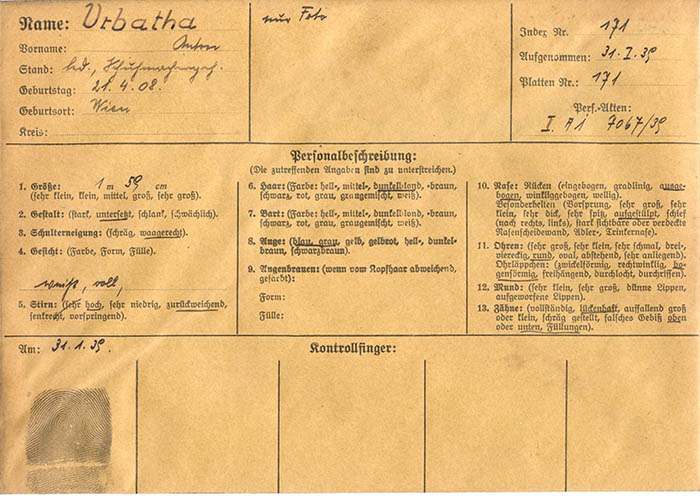 Name: Urbatha
nur Foto
Index Nr. 171
Vorname: Anton
Aufgenommen: 31. I. 39
Stand: led., Schuhmachergeh.
Platten Nr.: 171
Geburtstag: 21. 4. 08.
Geburtsort: Wien
Pers.-Akten:
Kreis:
I. A1 7067/39
Personalbeschreibung:
(Die zutreffenden Angaben sind zu unterstreichen.)
1. Größe: 1 m 59 cm
(sehr klein, klein, mittel, groß, sehr groß).
2. Gestalt: (stark, untersetzt, schlank, schwächlich).
3. Schulterneigung: (schräg, waagerecht).
4. Gesicht: (Farbe, Form, Fülle).
weiß, voll,
5. Stirn: (sehr hoch, sehr niedrig, zurückweichend,
senkrecht, vorspringend).
6. Haar: (Farbe: hell-, mittel-, dunkelblond, -braun,
schwarz, rot, grau, graugemischt, weiß).
7. Bart: (Farbe: hell-, mittel-, dunkelblond, -braun,
schwarz, rot, grau, graugemischt, weiß).
8. Auge: (blau, grau, gelb, gelbrot, hell-, dunkel-
braun, schwarzbraun).
9. Augenbrauen: (wenn vom Kopfhaar abweichend,
gefärbt):
Form:
Fülle:
10. Nase: Rücken (eingebogen, gradlinig, ausge-
bogen, winkliggebogen, wellig).
Besonderheiten (Vorsprung, sehr groß, sehr
klein, sehr dick, sehr spitz, aufgestülpt, schief
(nach rechts, links), stark sichtbare oder verdeckte
Nasenscheidewand, Adler-, Trinkernase).
11. Ohren: (sehr groß, sehr klein, sehr schmal, drei-,
viereckig, rund, oval, abstehend, sehr anliegend).
Ohrläppchen: (zwickelförmig, rechtwinklig, bo-
genförmig, freihängend, durchlocht, durchrissen).
12. Mund: (sehr klein, sehr groß, dünne Lippen,
aufgeworfene Lippen).
13. Zähne: (vollständig, lückenhaft, auffallend groß
oder klein, schräg gestellt, falsches Gebiß oben
oder unten, Füllungen).
Am: 31. 1. 39.
Kontrollfinger: